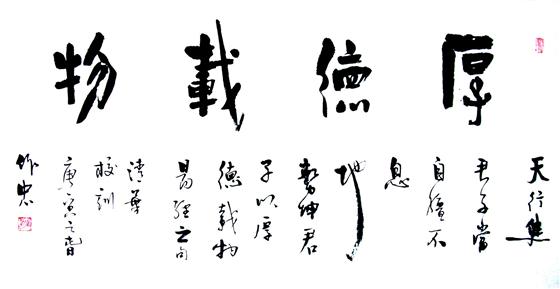 厚德載物
天行健
君子當
自彊不
息
地
勢坤君
子以厚
德載物
易經之句
清華
校訓
庚寅之春